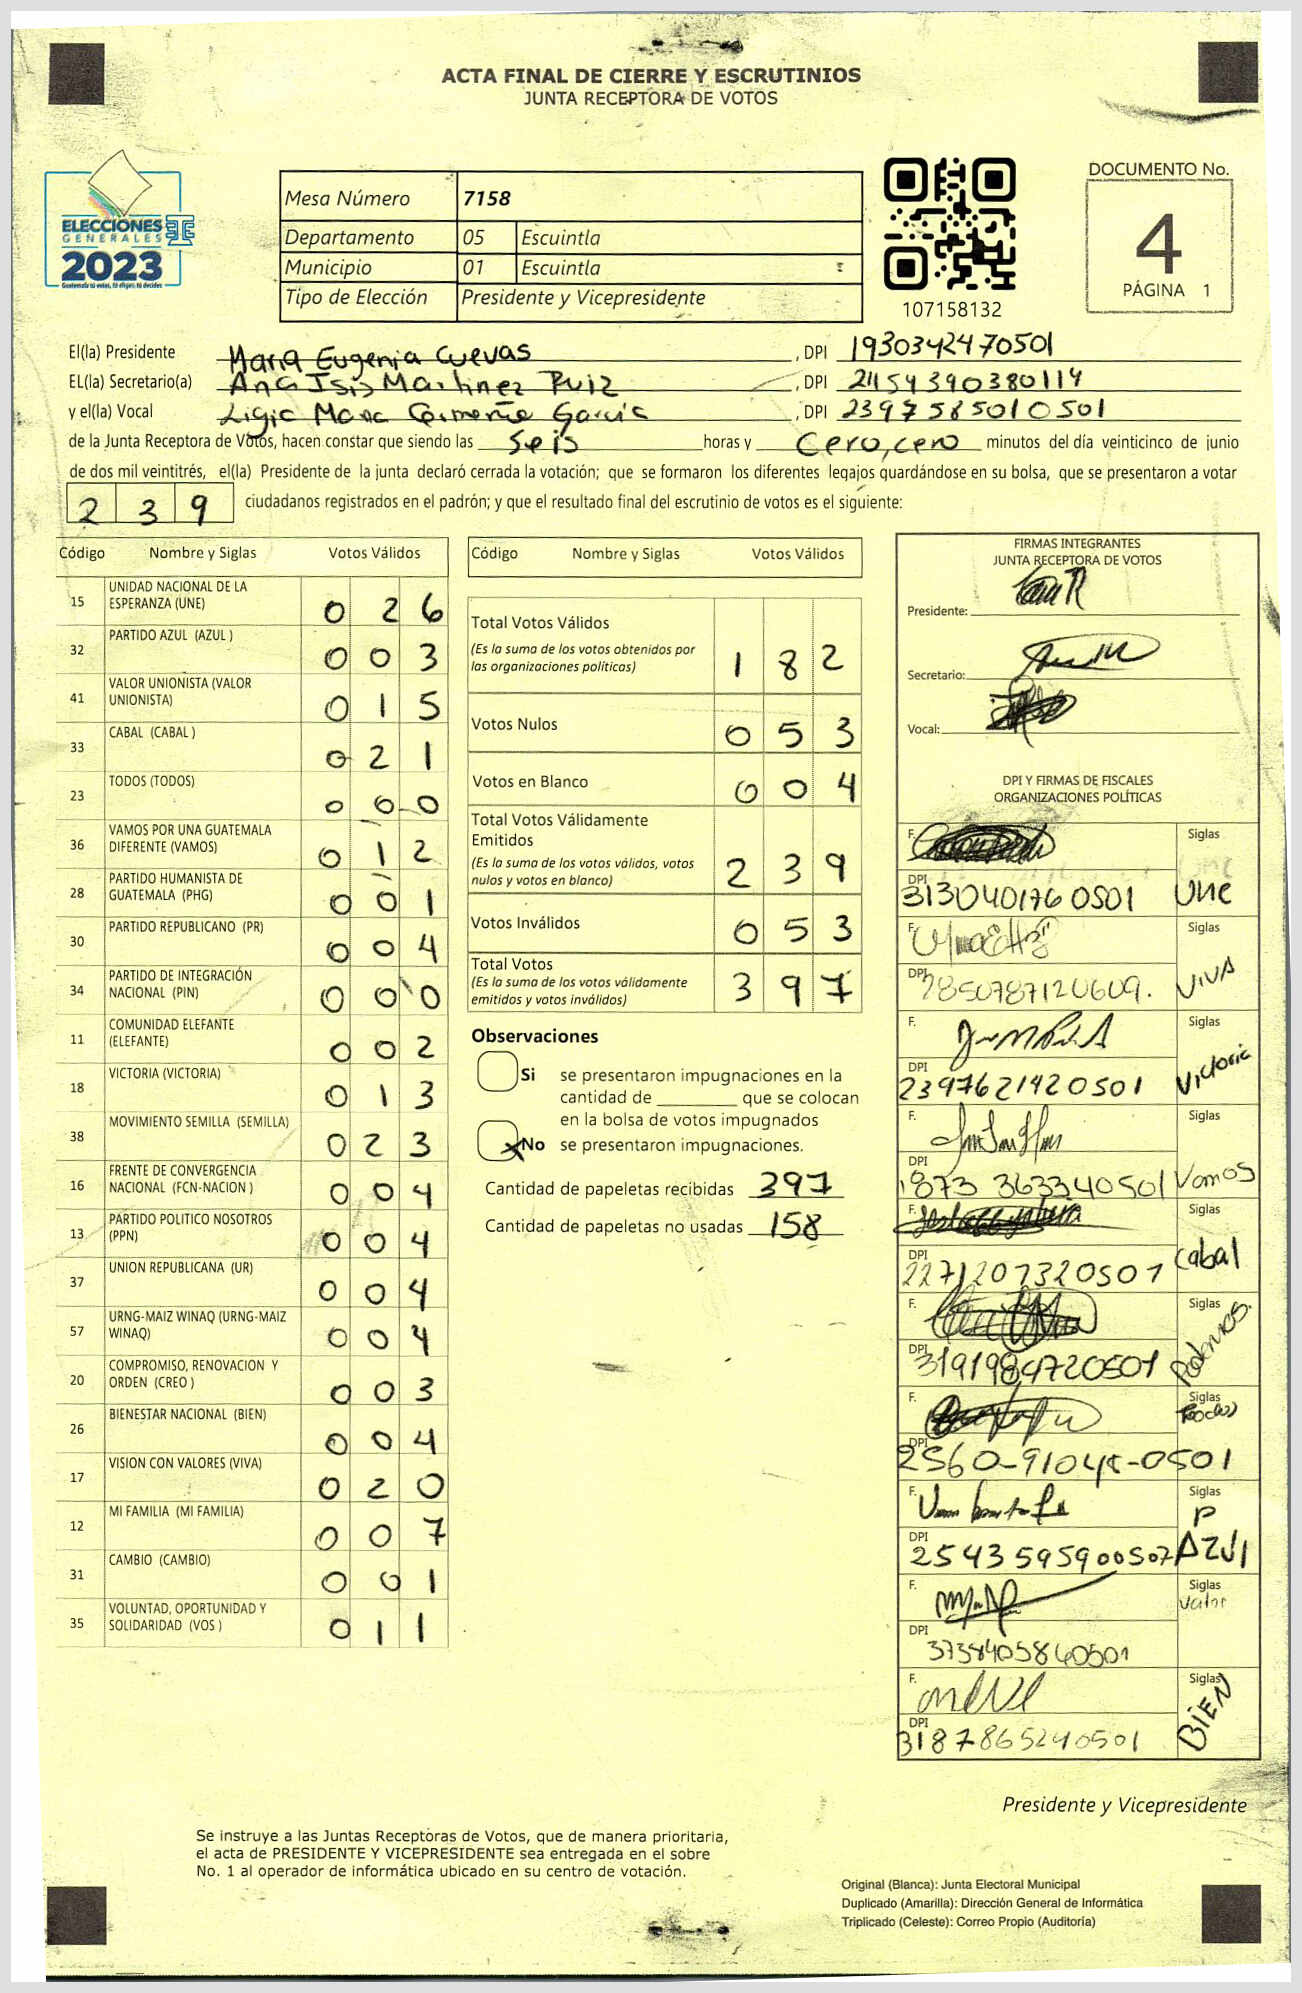 ACTA FINAL DE CIERRE Y ESCRUTINIOS
JUNTA RECEPTORA DE VOTOS
ELECCIONES
GENERALES
2023
Guatemala tú votas, tú eliges, tú decides
Mesa Número 7158
Departamento 05 Escuintla
Municipio 01 Escuintla
Tipo de Elección Presidente y Vicepresidente
107158132
DOCUMENTO No.
4
PÁGINA 1
El(la) Presidente Maria Eugenia Cuevas , DPI 1930342470501
EL(la) Secretario(a) Ana Isis Martinez Ruiz , DPI 2454390380114
y el(la) Vocal Ligia Maria García , DPI 2397585010501
de la Junta Receptora de Votos, hacen constar que siendo las Seis horas y Cero,cero minutos del día veinticinco de junio
de dos mil veintitrés, el(la) Presidente de la junta declaró cerrada la votación; que se formaron los diferentes legajos guardándose en su bolsa, que se presentaron a votar
239 ciudadanos registrados en el padrón; y que el resultado final del escrutinio de votos es el siguiente:
Código Nombre y Siglas Votos Válidos
15 UNIDAD NACIONAL DE LA ESPERANZA (UNE) 0 2 6
32 PARTIDO AZUL (AZUL ) 0 0 3
41 VALOR UNIONISTA (VALOR UNIONISTA) 0 1 5
33 CABAL (CABAL ) 0 2 1
23 TODOS (TODOS) 0 0 0
36 VAMOS POR UNA GUATEMALA DIFERENTE (VAMOS) 0 1 2
28 PARTIDO HUMANISTA DE GUATEMALA (PHG) 0 0 1
30 PARTIDO REPUBLICANO (PR) 0 0 4
34 PARTIDO DE INTEGRACIÓN NACIONAL (PIN) 0 0 0
11 COMUNIDAD ELEFANTE (ELEFANTE) 0 0 2
18 VICTORIA (VICTORIA) 0 1 3
38 MOVIMIENTO SEMILLA (SEMILLA) 0 2 3
16 FRENTE DE CONVERGENCIA NACIONAL (FCN-NACION ) 0 0 4
13 PARTIDO POLITICO NOSOTROS (PPN) 0 0 4
37 UNION REPUBLICANA (UR) 0 0 4
57 URNG-MAIZ WINAQ (URNG-MAIZ WINAQ) 0 0 4
20 COMPROMISO, RENOVACION Y ORDEN (CREO ) 0 0 3
26 BIENESTAR NACIONAL (BIEN) 0 0 4
17 VISION CON VALORES (VIVA) 0 2 0
12 MI FAMILIA (MI FAMILIA) 0 0 7
31 CAMBIO (CAMBIO) 0 0 1
35 VOLUNTAD, OPORTUNIDAD Y SOLIDARIDAD (VOS ) 0 1 1
Código Nombre y Siglas Votos Válidos
Total Votos Válidos 1 8 2
(Es la suma de los votos obtenidos por
las organizaciones políticas)
Votos Nulos 0 5 3
Votos en Blanco 0 0 4
Total Votos Válidamente
Emitidos 2 3 9
(Es la suma de los votos válidos, votos
nulos y votos en blanco)
Votos Inválidos 0 5 3
Total Votos 3 9 7
(Es la suma de los votos válidamente
emitidos y votos inválidos)
Observaciones
Si se presentaron impugnaciones en la
cantidad de ________ que se colocan
en la bolsa de votos impugnados
x No se presentaron impugnaciones.
Cantidad de papeletas recibidas 397
Cantidad de papeletas no usadas 158
FIRMAS INTEGRANTES
JUNTA RECEPTORA DE VOTOS
Presidente:
Secretario:
Vocal:
DPI Y FIRMAS DE FISCALES
ORGANIZACIONES POLÍTICAS
F. Siglas
DPI 3130401760501 Une
F. Siglas
DPI 2850787120609. VIVA
F. Siglas
DPI 2397621420501 Victoria
F. Siglas
DPI 1873 363340501 Vamos
F. Siglas
DPI 2271207320501 Cabal
F. Siglas
DPI 3191984720501 Podemos
F. Siglas
DPI 2560-91045-0501 Todos
F. Siglas
DPI 2543595900507 P AZUl
F. Siglas
DPI 3738405840501 Valor
F. Siglas
DPI 3187865240501 BIEN
Presidente y Vicepresidente
Se instruye a las Juntas Receptoras de Votos, que de manera prioritaria,
el acta de PRESIDENTE Y VICEPRESIDENTE sea entregada en el sobre
No. 1 al operador de informática ubicado en su centro de votación.
Original (Blanca): Junta Electoral Municipal
Duplicado (Amarilla): Dirección General de Informática
Triplicado (Celeste): Correo Propio (Auditoría)